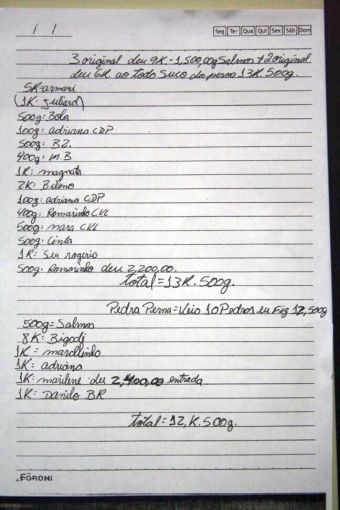 / /
Seg Ter Qua Qui Sex Sáb Dom
3 original deu 9K - 1,500,00g Salmos + 2 original
deu 6K ao todo suco do perna 13K.500g.
5K-armani
(1K: Juliard)
500g: Bola
100g: adriana CDP
500g: B2.
400g: M.B
1K: magnata
2K: Bileno
100g: adriana CDP
400g: Romarinho CVL
500g: mara CVL
500g: Cinta
1K: Seu rogério
500g: Romarinho deu 2,200,00.
total = 13K.500g.
Pedra Perna = Veio 10 Pedros eu Fiz 12,500g
500g = Salmos
8K: Bigodi
1K = marollinho
1K: adriano
1K: marilene deu 2,400,00 entrada
1K: Danilo BR
total = 12,K.500g.
FORONI